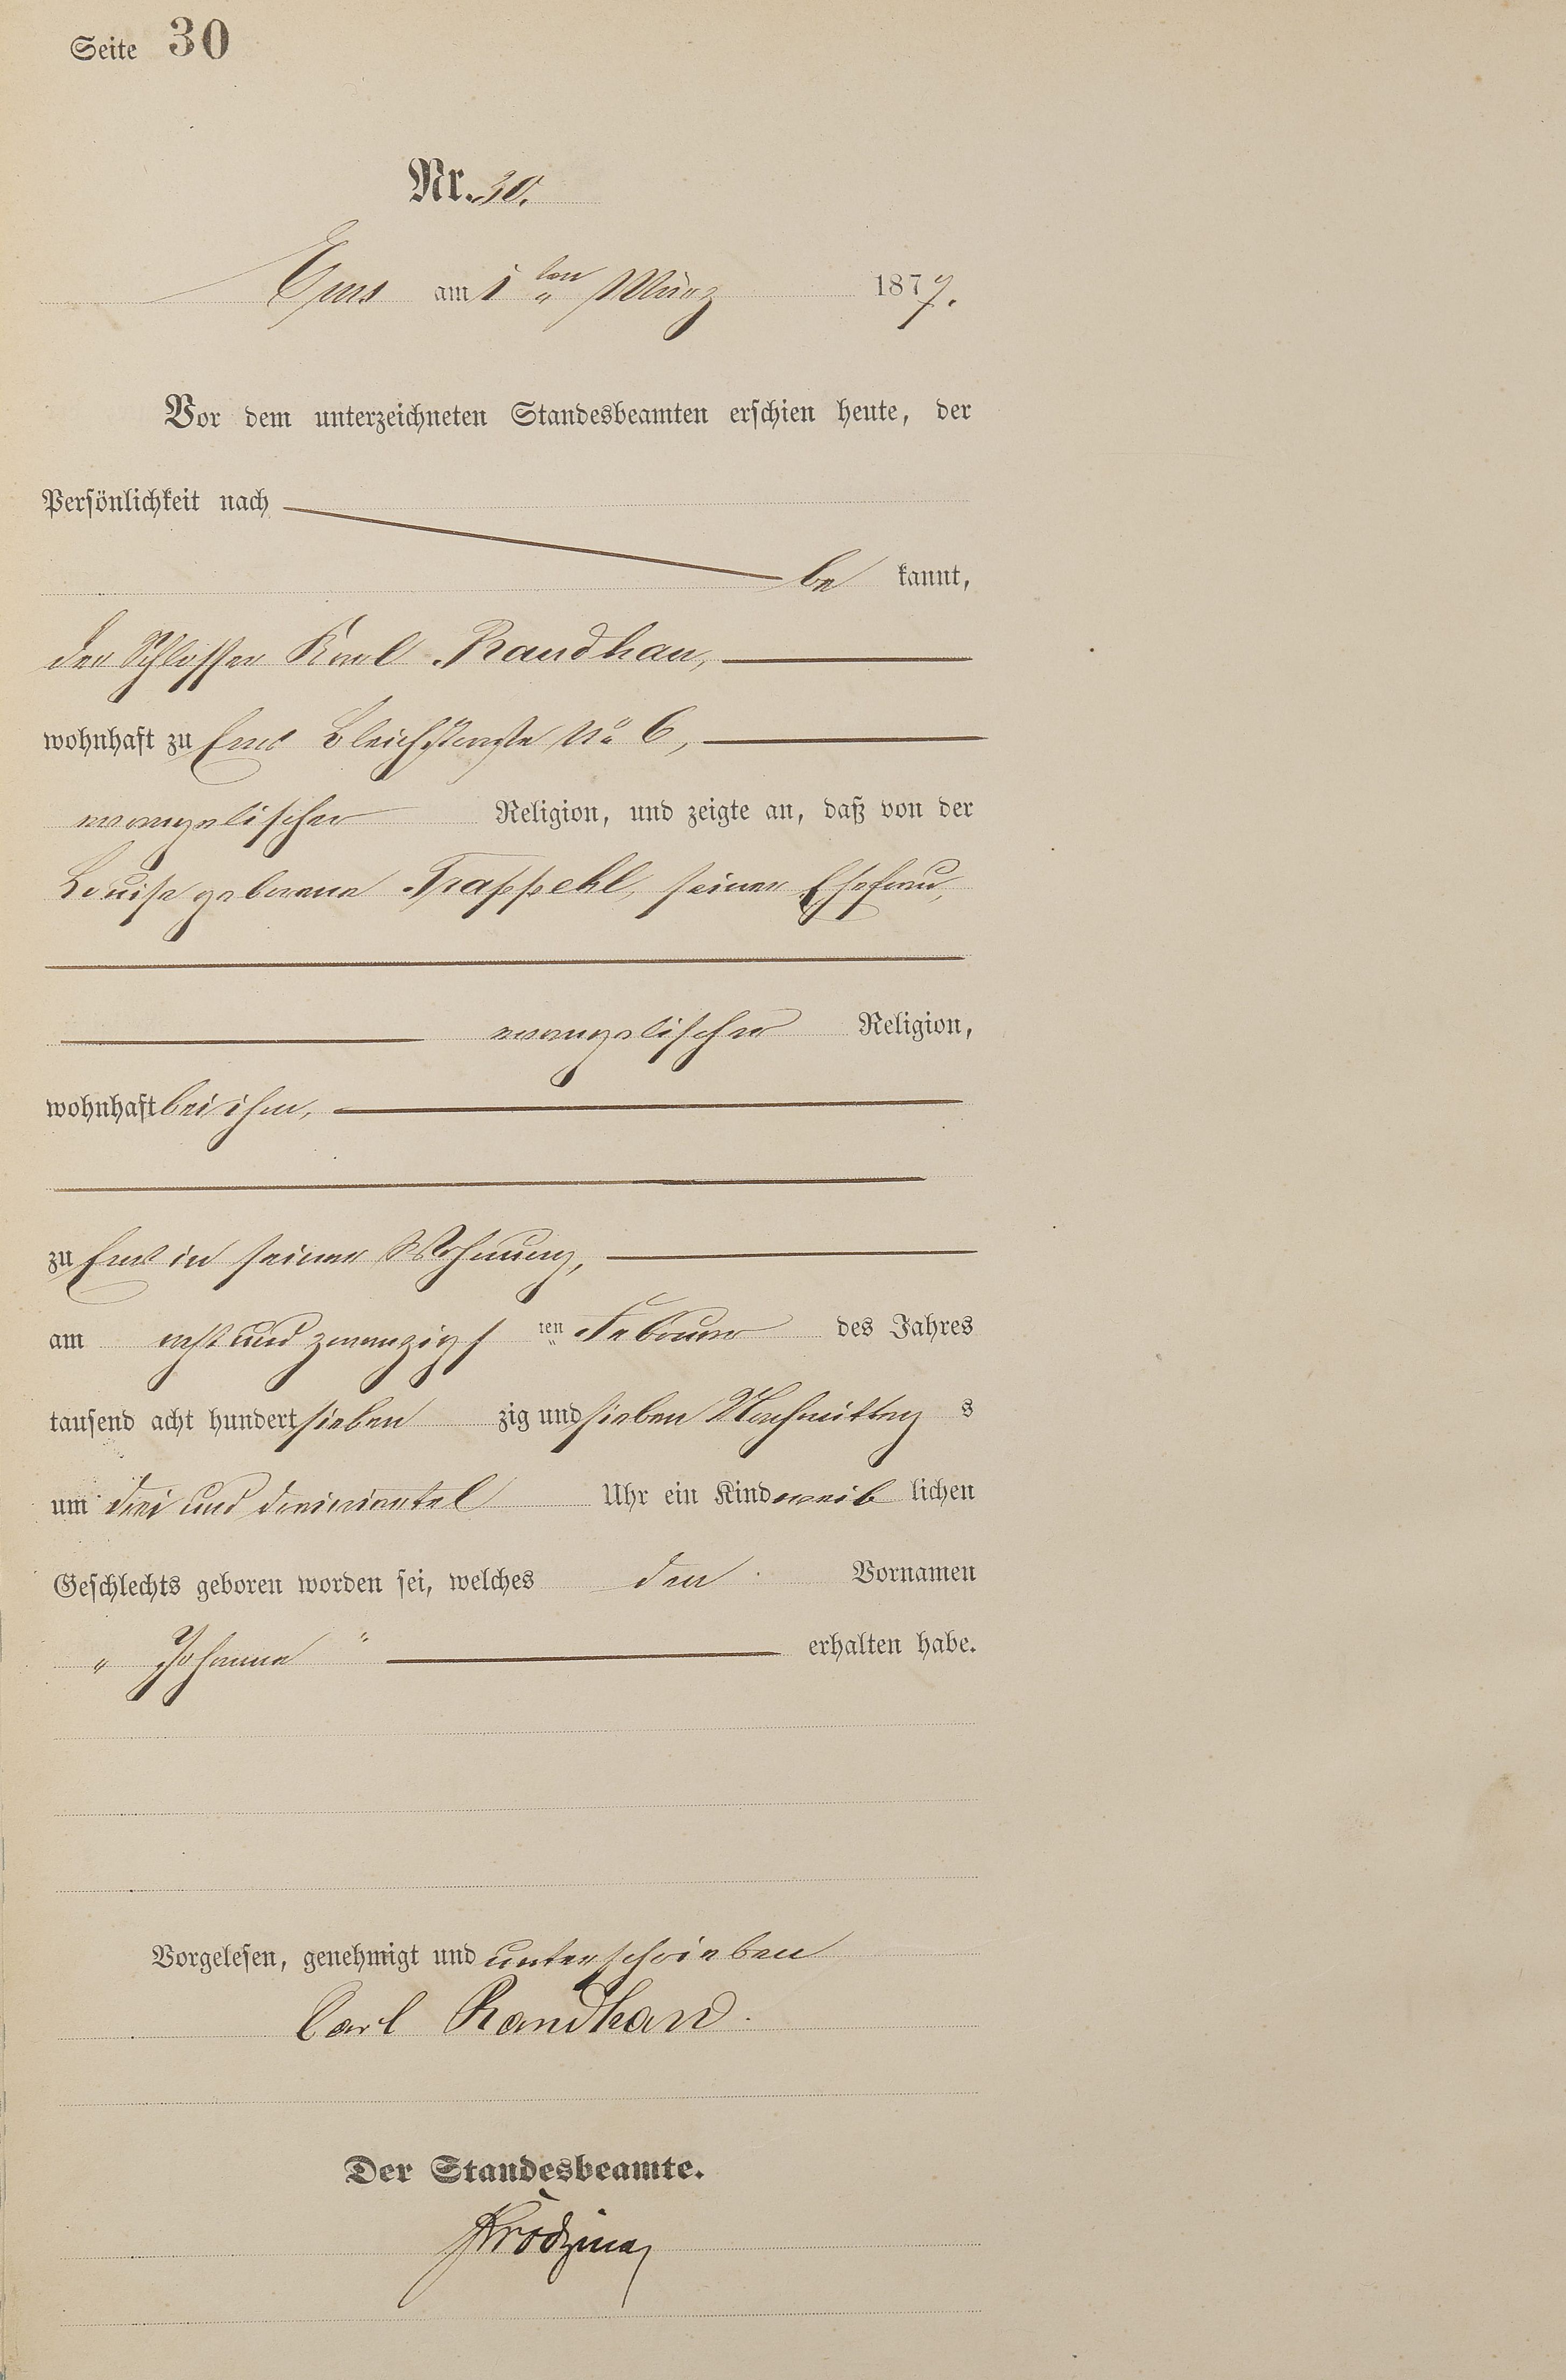 Seite 30
Nr. 30.
Ems am 1ten März 1877.
Vor dem unterzeichneten Standesbeamten erschien heute, der
Persönlichkeit nach
be kannt,
der Schlosser Karl Raudhau,
wohnhaft zu Ems Bleichstraße No 6,
evangelischer Religion, und zeigte an, daß von der
Louise geborene Trappehl, seiner Ehefrau,
evangelischer Religion,
wohnhaft bei ihm,
zu Ems in seiner Wohnung,
am acht und zwanzigsten Februar des Jahres
tausend acht hundert sieben zig und sieben Nachmittag s
um drei und dreiviertel Uhr ein Kind weib lichen
Geschlechts geboren worden sei, welches den Vornamen
„ Johanna “ erhalten habe.
Vorgelesen, genehmigt und unterschrieben
Carl
Der Standesbeamte.